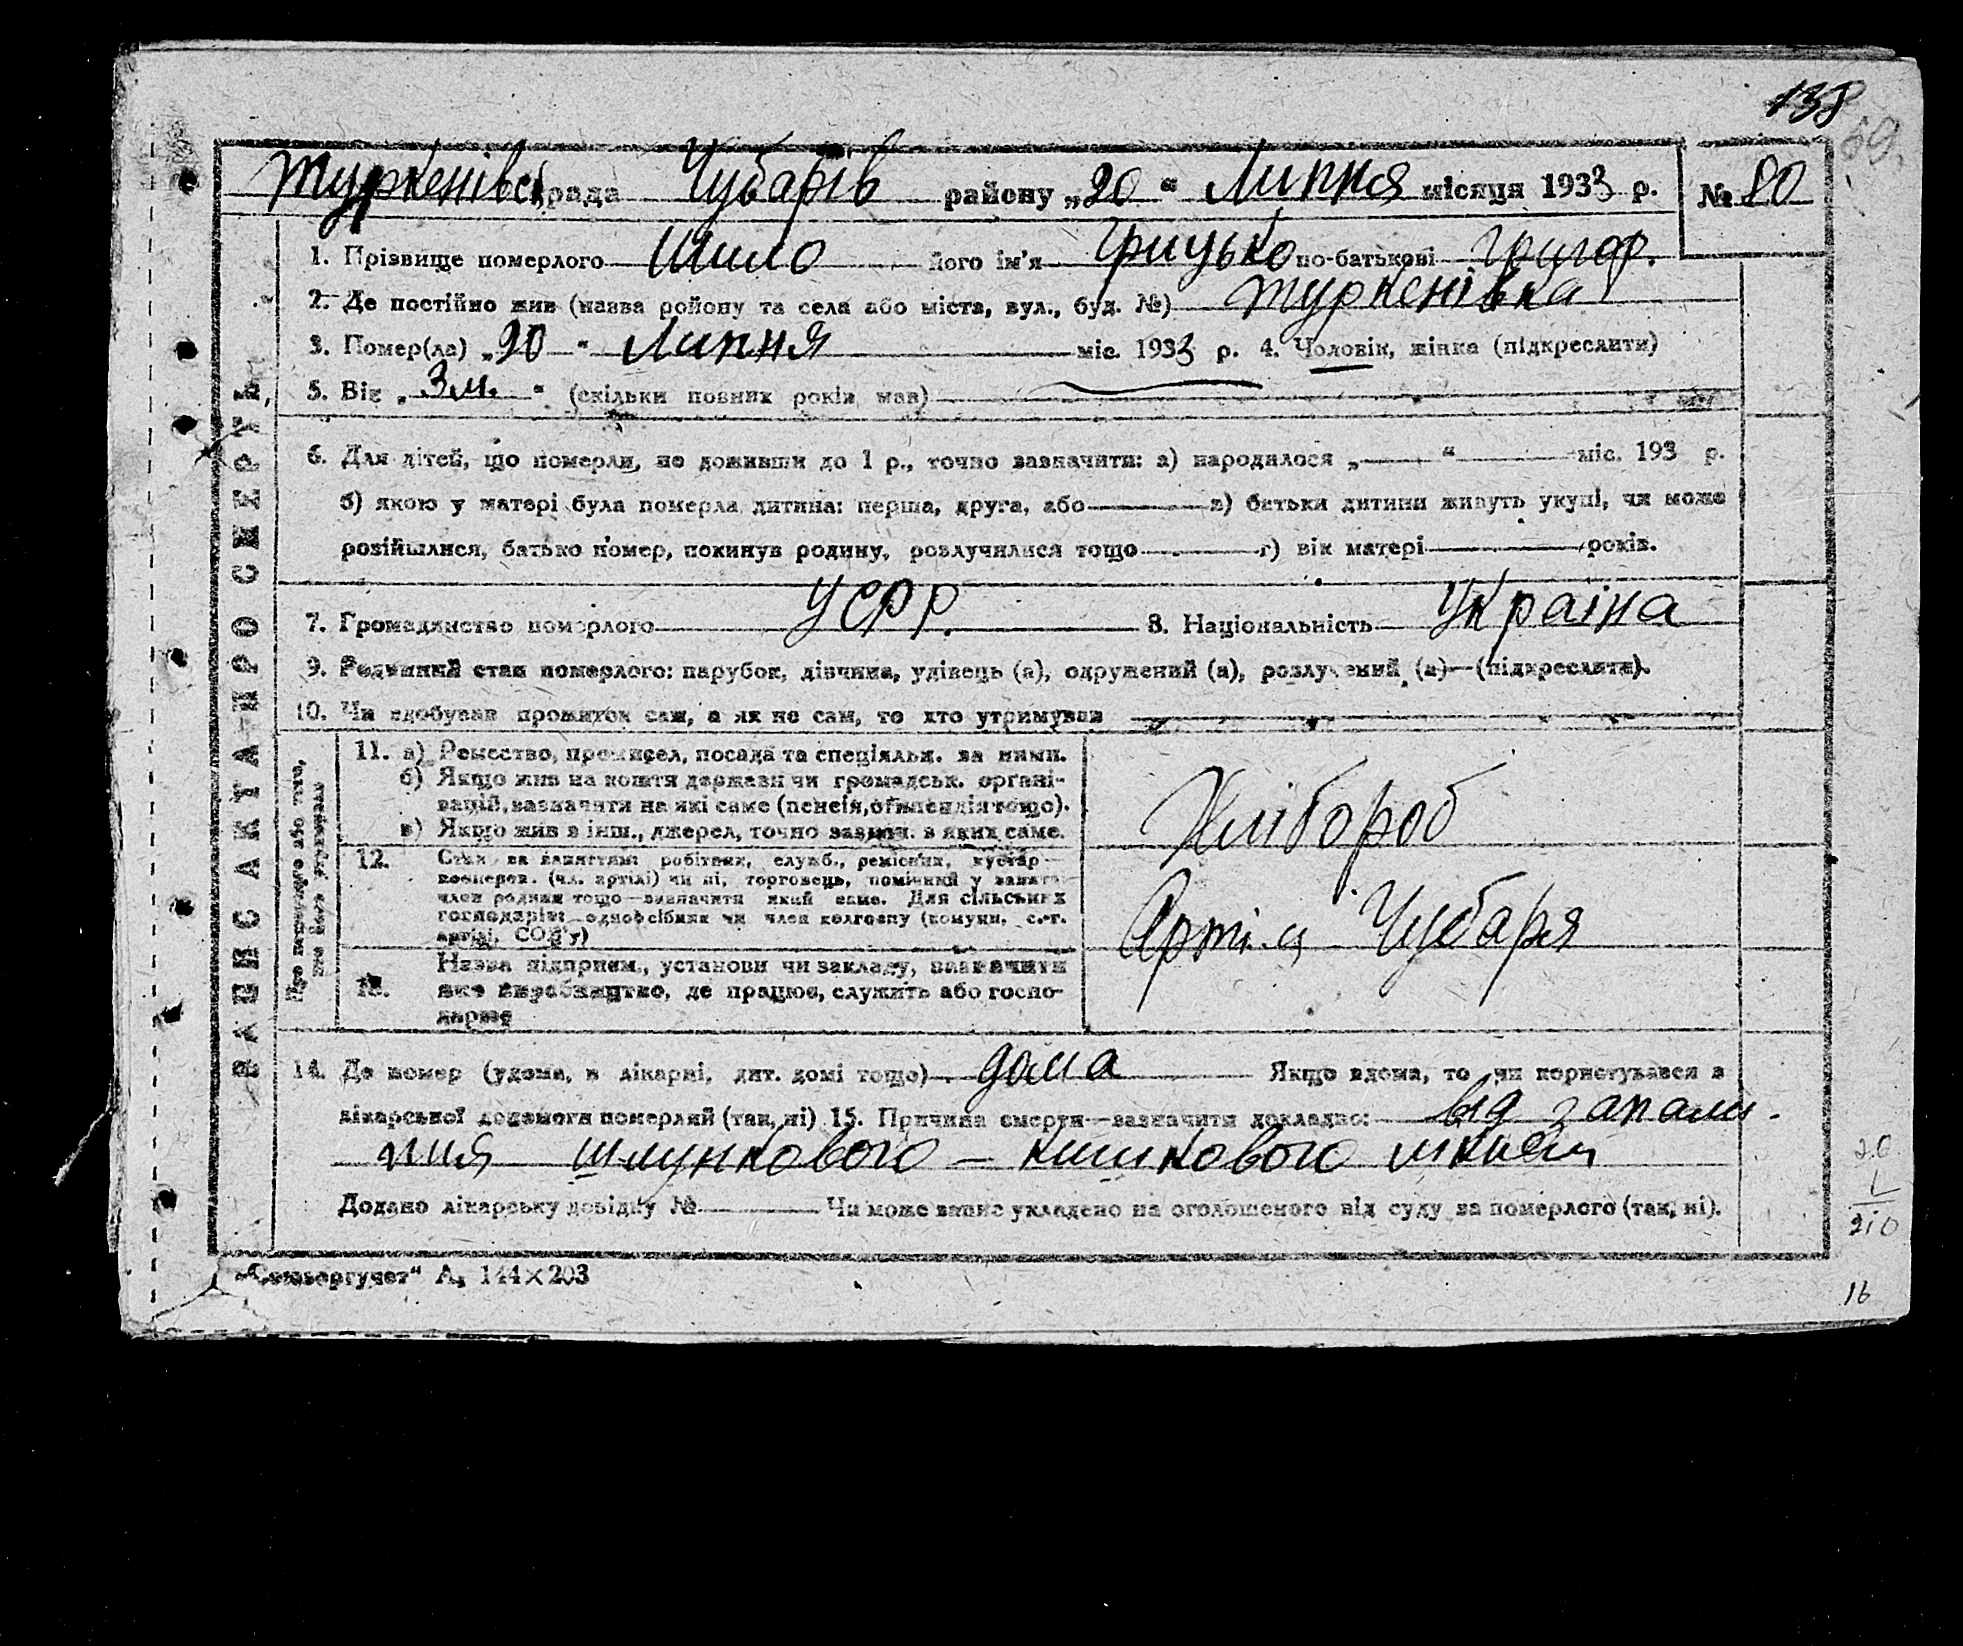 138
59.
Туркенівс рада Чубарів району „20“ Липня місяця 1933 р. № 80
ЗАПИС АКТА ПРО СМЕРТЬ
1. Прізвище померлого Шило його ім'я Грицько по-батькові Григор.
2. Де постійно жив (назва району та села або міста, вул., буд. №) Туркенівка
3. Помер(ла) „20“ Липня міс. 1933 р. 4. Чоловік, жінка (підкреслити)
5. Вік „3 м.“ (скільки повних років мав)
6. Для дітей, що померли, не доживши до 1 р., точно зазначити: а) народилося „ “ міс. 193 р.
б) якою у матері була померла дитина: перша, друга, або в) батьки дитини живуть укупі, чи може
розійшлися, батько помер, покинув родину, розлучилися тощо г) вік матері років.
7. Громадянство померлого УСРР. 8. Національність Україна
9. Родинний стан померлого: парубок, дівчина, удівець (а), одружений (а), розлучений (а)—(підкреслити).
10. Чи здобував прожиток сам, а як не сам, то хто утримував
11. а) Ремество, промисел, посада та спеціяльн. за ними.
б) Якщо жив на кошти держави чи громадськ. органі-
зацій, зазначити на які саме (пенсія, стипендія тощо).
в) Якщо жив з інш., джерел, точно зазнач. з яких саме.
Хлібороб
12. Стан за заняттям: робітник, служб., ремісник, кустар—
кооперов. (чл. артілі) чи ні, торговець, помічний у занят.
член родини тощо—зазначити який саме. Для сільських
господарів: одноосібник чи член колгоспу (комуни, с.-г.
артілі, СОЗ'у)
Артіл Чубаря
13. Назва підприєм., установи чи закладу, зазначити
яке виробництво, де працює, служить або госпо-
дарює
14. Де помер (удома, в лікарні, дит. домі тощо) дома Якщо вдома, то чи користувався з
лікарської допомоги померлий (так, ні) 15. Причина смерти—зазначити докладно: від запали-
ния шлункового – кишкового
Додано лікарську довідку № Чи може запис укладено на оголошеного від суду за померлого (так, ні).
„Союзоргучет“ А, 144×203
20
210
16